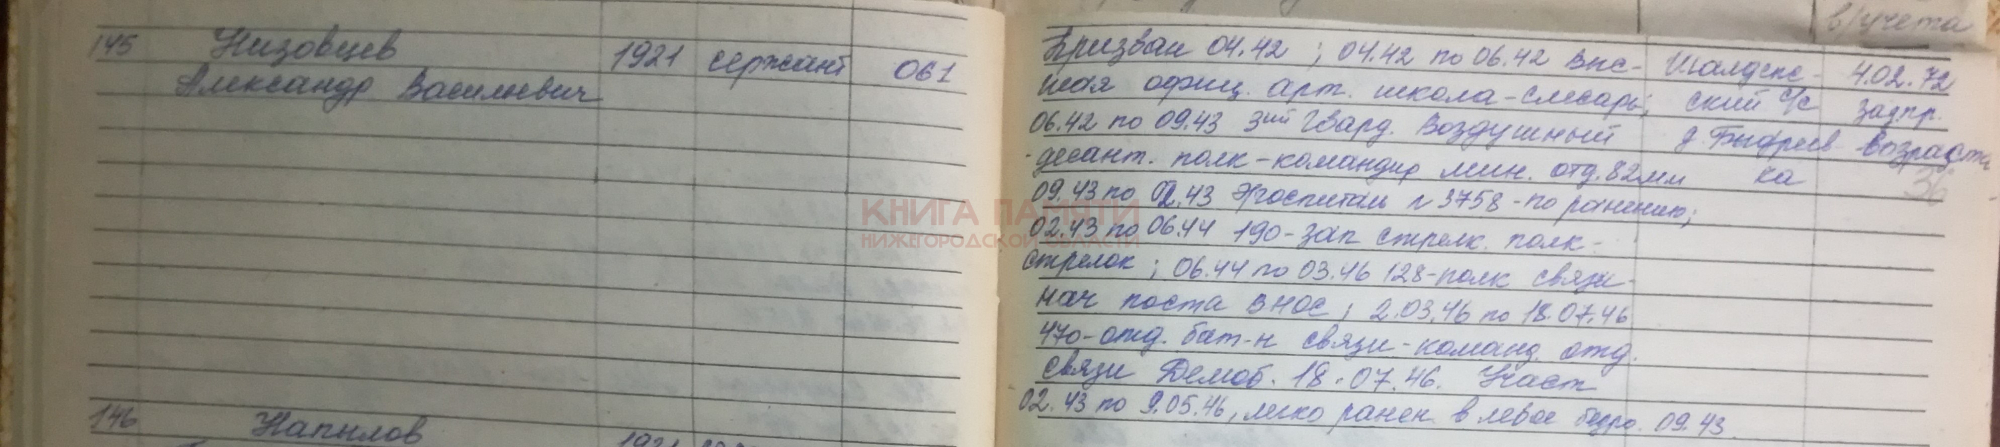 в/учета
145 Низовцев 1921 сержант 061
Александр Васильевич
Призван 04.42; 04.42 по 06.42 Выс- Шалдеж- 4.02.72
шая офиц. арт. школа-слесарь; ский с/с задпр.
06.42 по 09.43 3ий Гвард. Воздушный д. Быдреев возраста
десант. полк-командир мин. отд. 82мм ка 36
09.43 по 02.43 Эгоспиталь №3758-по ранению;
КНИГА ПАМЯТИ
НИЖЕГОРОДСКОЙ ОБЛАСТИ
02.43 по 06.44 190-зап стрелк. полк-
стрелок; 06.44 по 03.46 128-полк связи-
нач поста ВНОС; 2.03.46 по 18.07.46
470-отд. бат-н связи-команд. отд.
связи Демоб. 18.07.46. Участ
02.43 по 9.05.46, легко ранен в левое бедро. 09.43
146 Напылов 1921